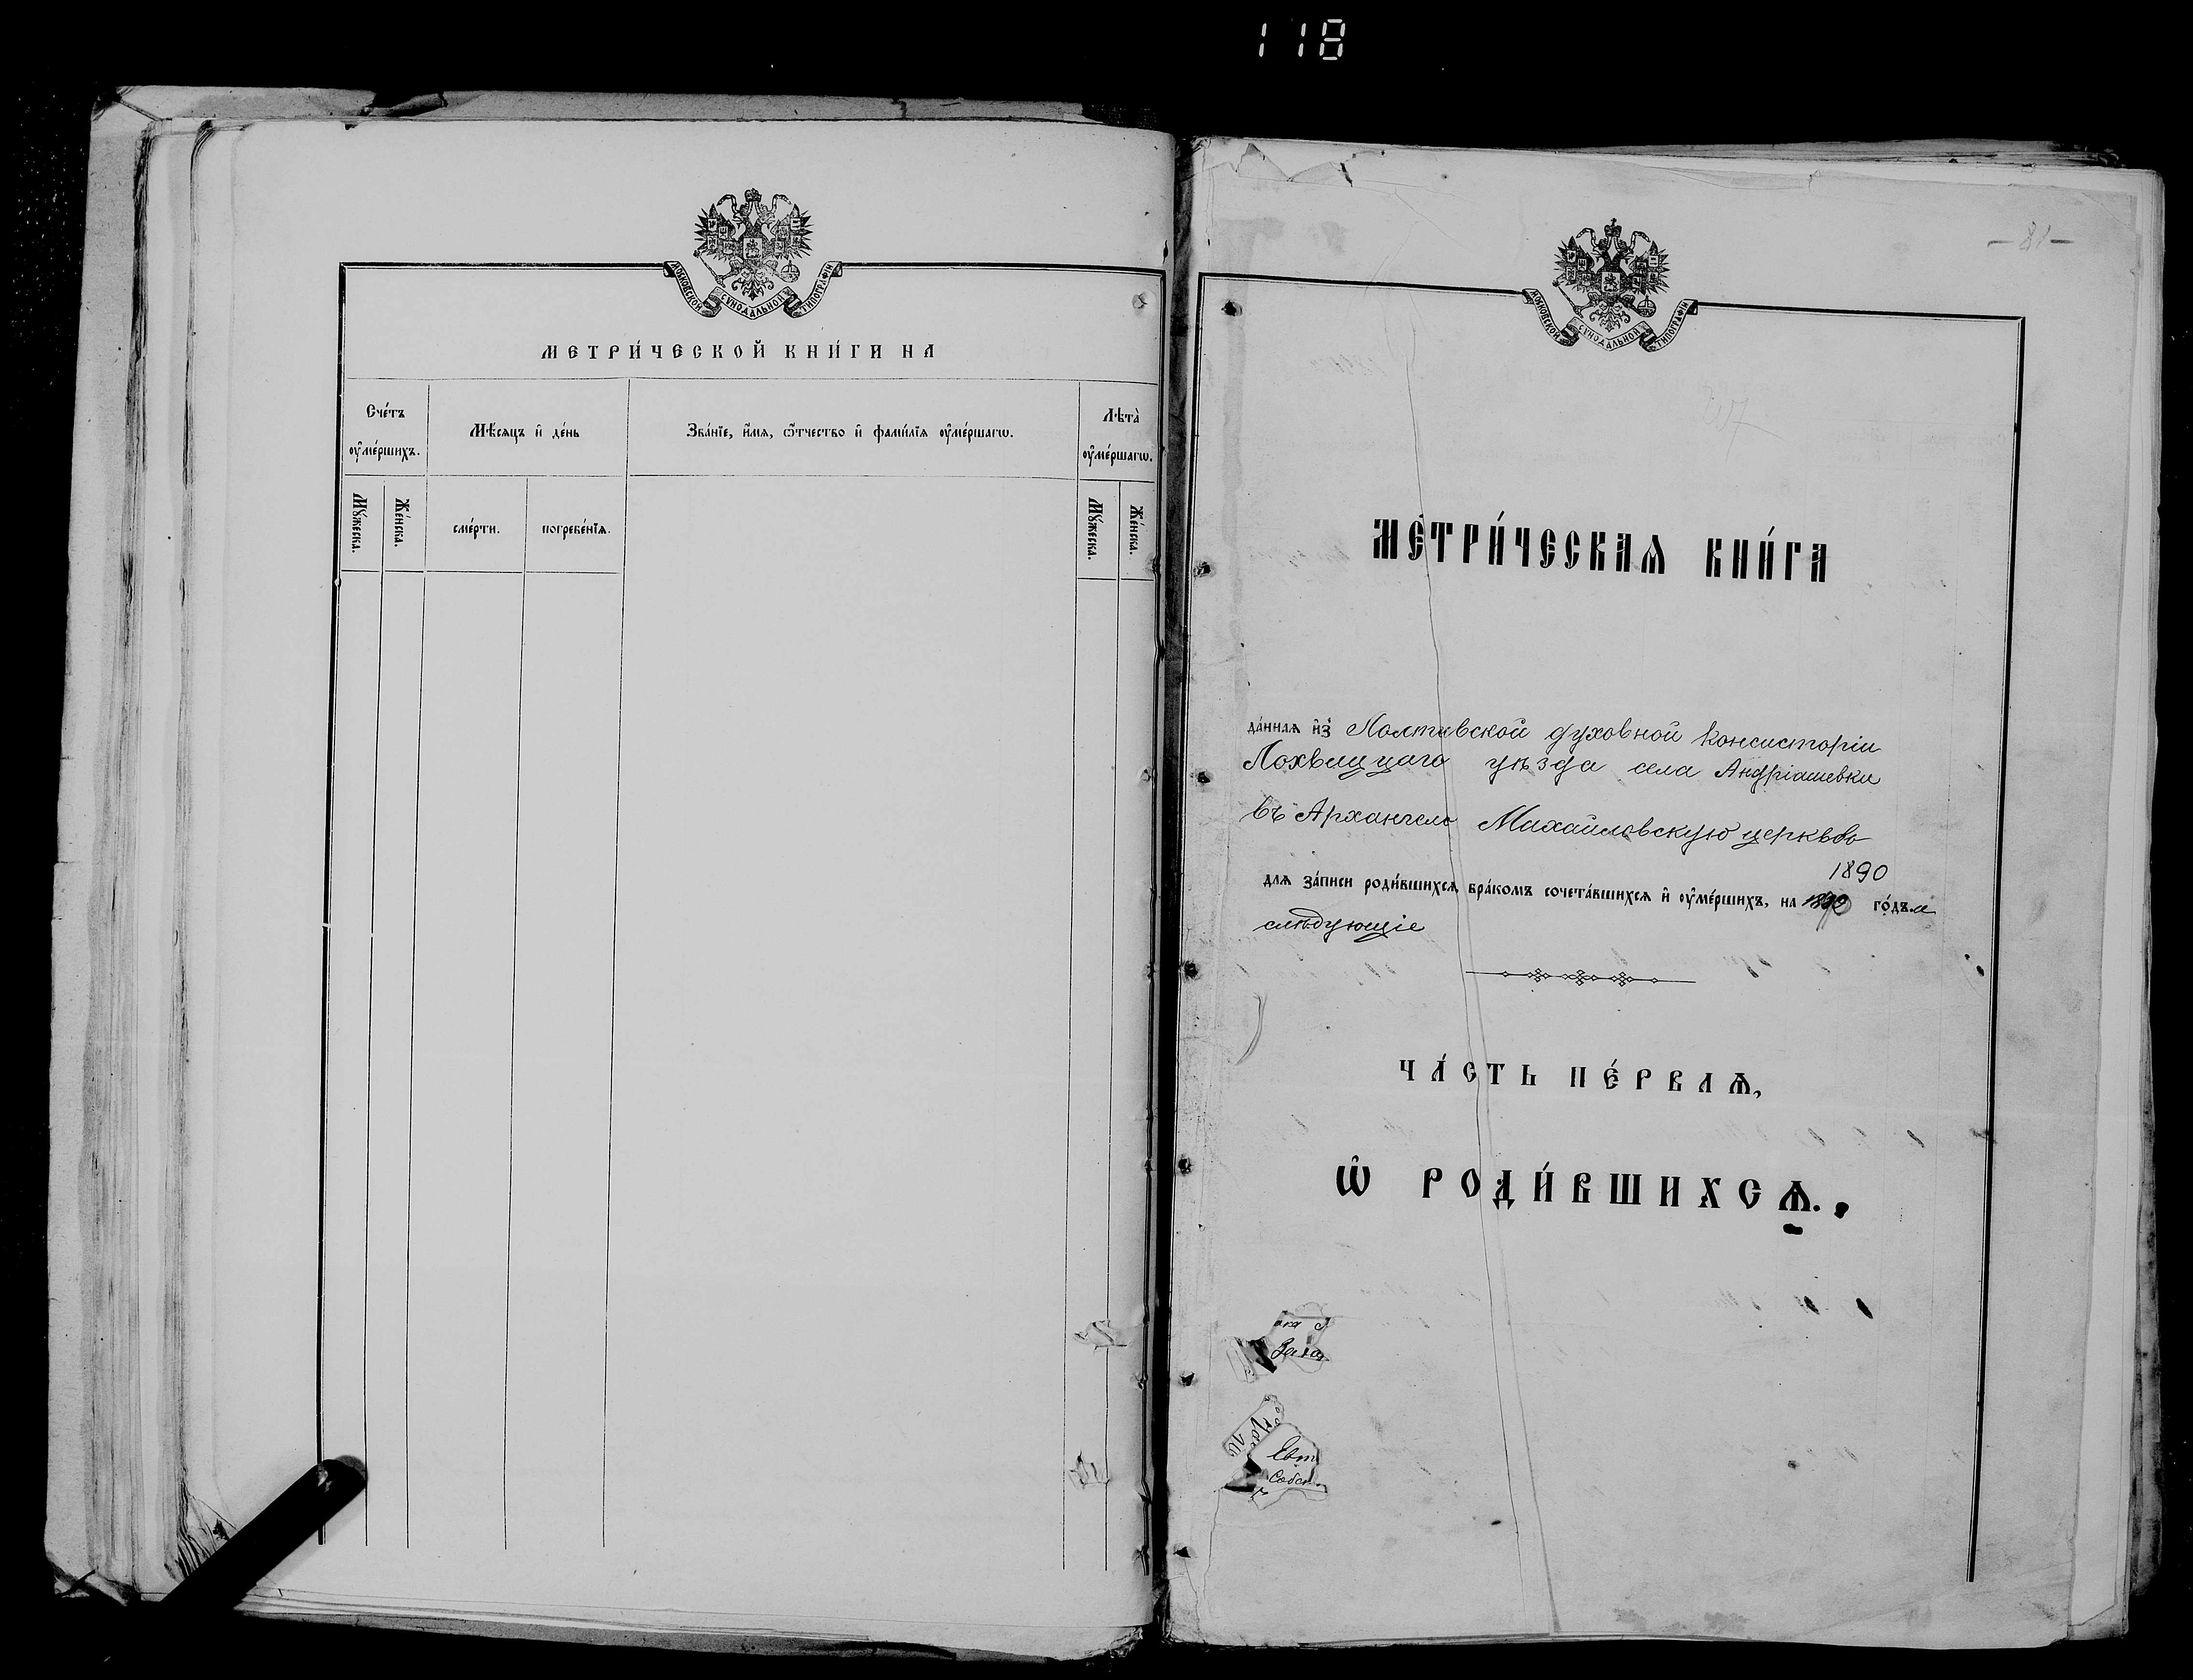 118
МОСКОВСКОЙ СѴНОДАЛЬНОЙ ТИПОГРАФІИ
МЕТРИ́ЧЕСКОЙ КНИ́ГИ НА
Сче́тъ ᲂу҆ме́ршихъ.
Мѣ́сяцъ и҆ де́нь
Зва́нїе, и҆́мѧ, ѻ҆́тчество и҆ фами́лїѧ ᲂу҆ме́ршагѡ.
Лѣта̀ ᲂу҆ме́ршагѡ.
Мꙋ́жеска.
Же́нска.
сме́рти.
погребе́нїѧ.
Мꙋ́жеска.
Же́нска.
— 81 —
МОСКОВСКОЙ СѴНОДАЛЬНОЙ ТИПОГРАФІИ
МЕТРИ́ЧЕСКАѦ КНИ́ГА
да́ннаѧ и҆з̾ Полтавской духовной Консисторіи
Лохвицкаго уѣзда села Андріашевки
въ Архангело Михайловскую церковь
1890
длѧ за́писи роди́вшихсѧ, бра́комъ сочета́вшихсѧ и҆ ᲂу҆ме́ршихъ, на го́дъ и
слѣдующіе
ЧА́СТЬ ПЕ́РВАѦ,
Ѡ҆ РОДИ́ВШИХСѦ.
Евт